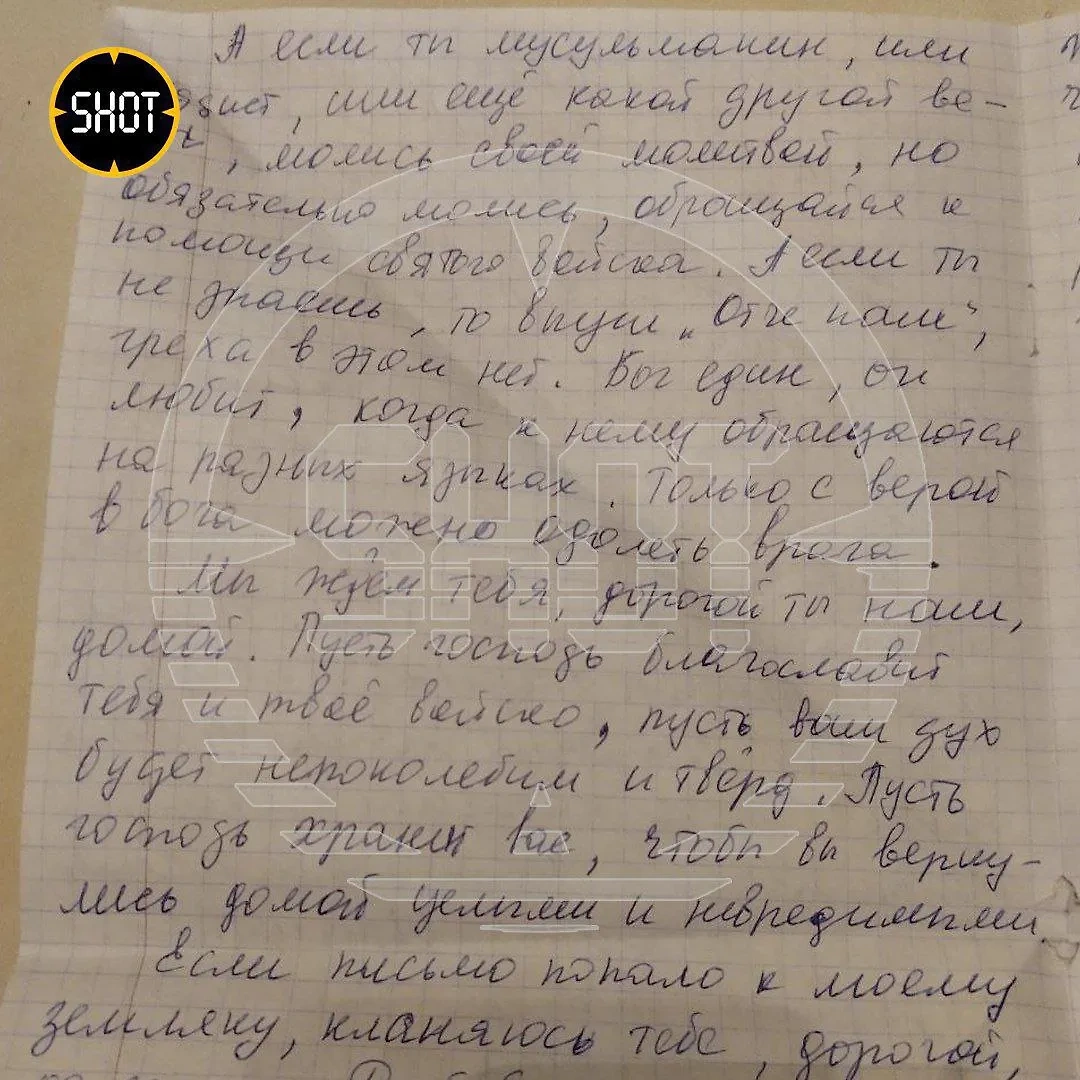 SHOT
А если ты мусульманин, или
, или ещё какой другой ве-
, молись своей молитвой, но
обязательно молись, обращайся к
помощи святого войска. А если ты
не знаешь, то выучи „Отче наш“,
греха в этом нет. Бог един, он
любит, когда к нему обращаются
на разных языках. Только с верой
в бога можно одолеть врага.
Мы ждём тебя, дорогой ты наш,
домой. Пусть господь благославит
тебя и твоё войско, пусть ваш дух
будет непоколебим и твёрд. Пусть
господь хранит вас, чтобы вы верну-
лись домой целыми и невредимыми
Если письмо попало к моему
земляку, кланяюсь тебе, дорогой,